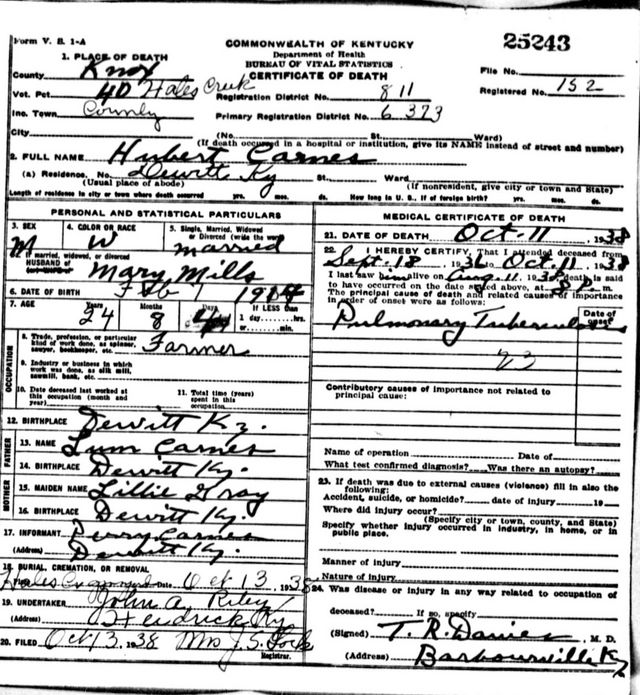 Form V. S. 1-A
COMMONWEALTH OF KENTUCKY
Department of Health
BUREAU OF VITAL STATISTICS
CERTIFICATE OF DEATH
25243
1. PLACE OF DEATH
County Knox
Vot. Pct 40 Hales Creek
Inc. Town County
City
Registration District No. 811
Primary Registration District No. 6373
File No.
Registered No. 152
(No. St. Ward)
(If death occurred in a hospital or institution, give its NAME instead of street and number)
2. FULL NAME Hubert Carnes
(a) Residence. No. Dewitt Ky St. Ward
(Usual place of abode) (If nonresident, give city or town and State)
Length of residence in city or town where death occurred yrs. mos. ds. How long in U. S., if of foreign birth? yrs. mos. ds.
PERSONAL AND STATISTICAL PARTICULARS
3. SEX M
4. COLOR OR RACE W
5. Single, Married, Widowed or Divorced (write the word) married
If married, widowed, or divorced
HUSBAND of Mary Mills
6. DATE OF BIRTH Feb 7
7. AGE Years 24 Months 8 Days 4
If LESS than
1 day hrs.
or min.
OCCUPATION
8. Trade, profession, or particular
kind of work done, as spinner,
sawyer, bookkeeper, etc. Farmer
9. Industry or business in which
work was done, as silk mill,
sawmill, bank, etc.
10. Date deceased last worked at
this occupation (month and
year)
11. Total time (years)
spent in this
occupation
12. BIRTHPLACE Dewitt Ky.
FATHER
13. NAME Lum Carnes
14. BIRTHPLACE Dewitt Ky.
MOTHER
15. MAIDEN NAME Lillie Gray
16. BIRTHPLACE Dewitt Ky.
17. INFORMANT Perry Carnes
(Address) Dewitt Ky.
18. BURIAL, CREMATION, OR REMOVAL
Hales Date Oct 13 1938
19. UNDERTAKER John A. Riley
(Address) Hendrick Ky
20. FILED Oct 13 38 Mrs J. S.
Registrar.
MEDICAL CERTIFICATE OF DEATH
21. DATE OF DEATH Oct-11 1938
22. I HEREBY CERTIFY, That I attended deceased from
Sept. 18 1936 to Oct. 11 1938
I last saw him alive on Aug. 11 1938 death is said
to have occurred on the date stated above, at m.
The principal cause of death and related causes of importance
in order of onset were as follows:
Date of onset
Pulmonary Tuberculosis
23
Contributory causes of importance not related to
principal cause:
Name of operation Date of
What test confirmed diagnosis? Was there an autopsy?
23. If death was due to external causes (violence) fill in also the
following:
Accident, suicide, or homicide? date of injury 19
Where did injury occur?
(Specify city or town, county, and State)
Specify whether injury occurred in industry, in home, or in
public place.
Manner of injury
Nature of injury
24. Was disease or injury in any way related to occupation of
deceased? If so, specify
(Signed) T. R. Davies M. D.
(Address) Barbourville Ky